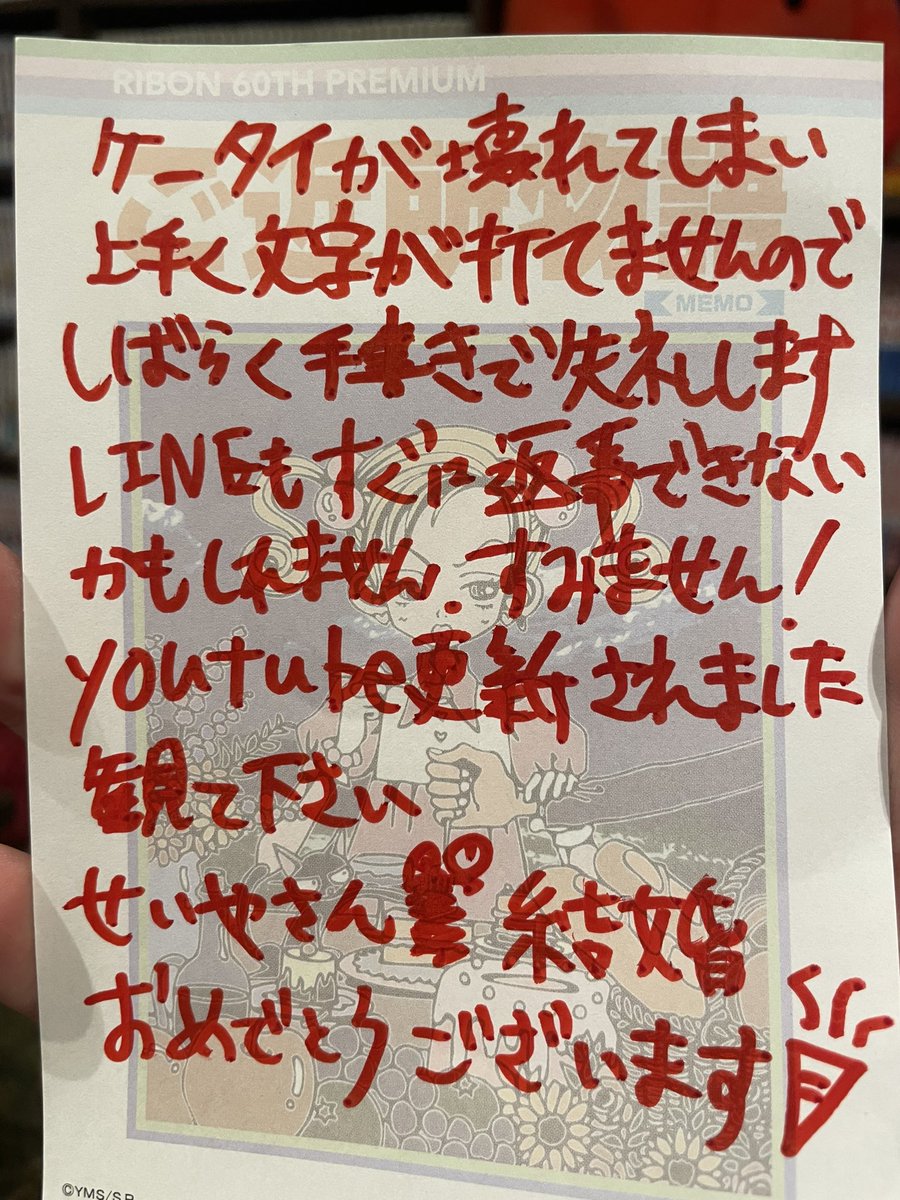 RIBON 60TH PREMIUM
ご近所物語
MEMO
ケータイが壊れてしまい
上手く文字が打てませんので
しばらく手書きで失礼します
LINEもすぐに返事できない
かもしれません すみません!
youtube更新されました
観て下さい
せいやさん 結婚
おめでとうございます
©YMS/S.P.